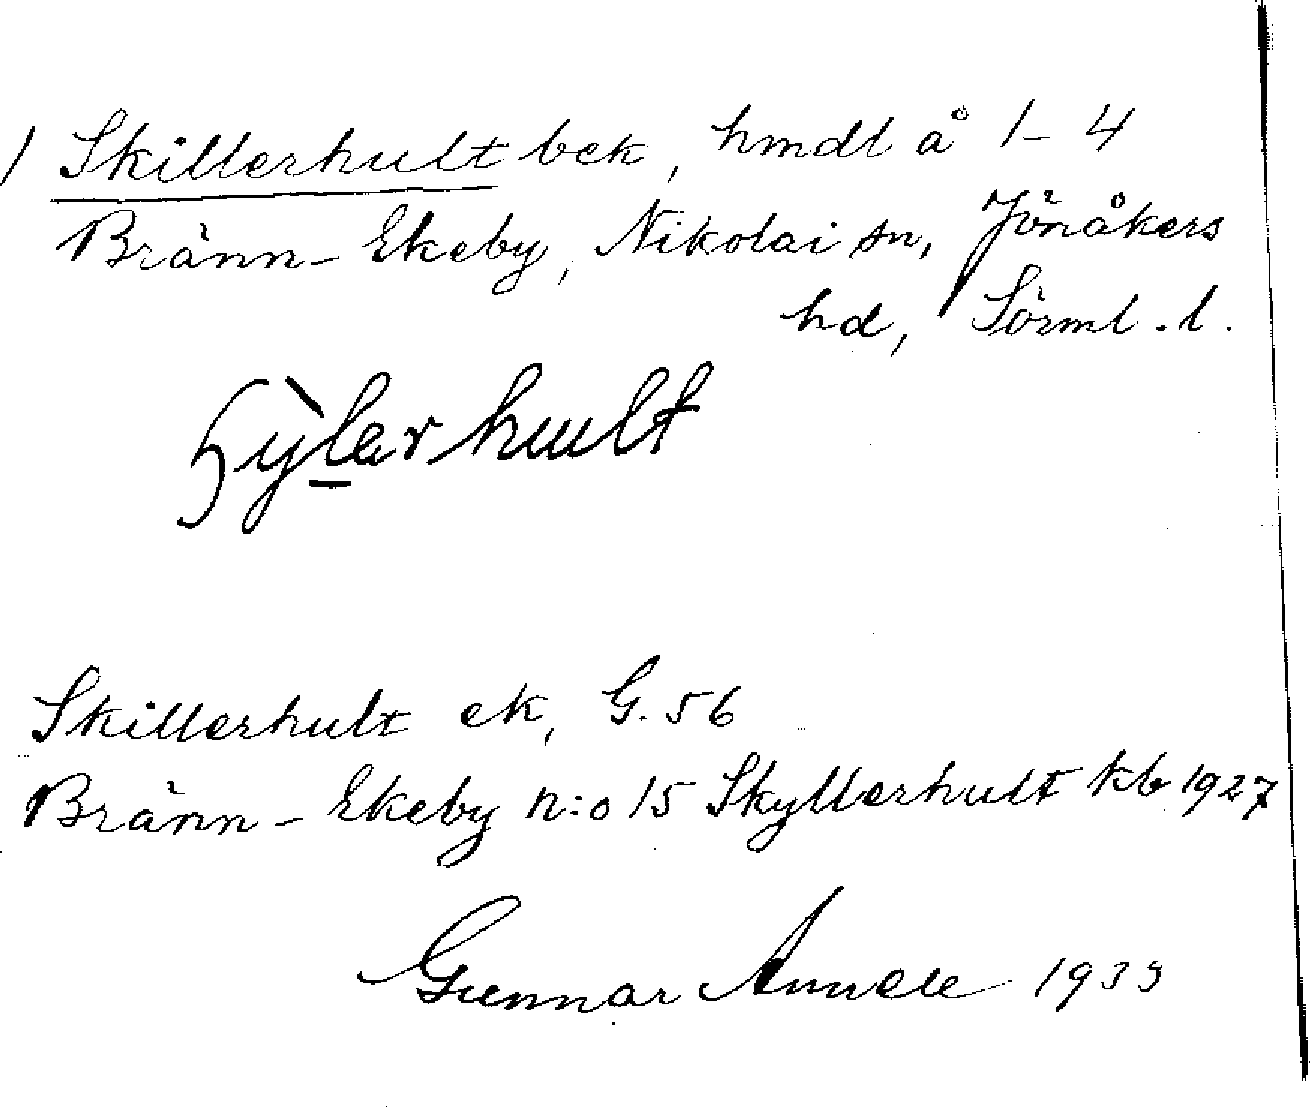 1 Skillerhult bek, hmdl å 1-4
Bränn-Ekeby, Nikolai sn, Jönåkers
hd, Sörml. l.
ʃỳlerhult
Skillerhult ek, G. 56
Bränn-Ekeby n:o 15 Skyllerhult kb 1927
Gunnar 1933